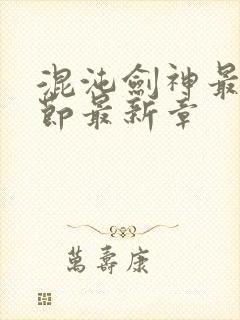 混沌劍神最
節最新章
萬壽康